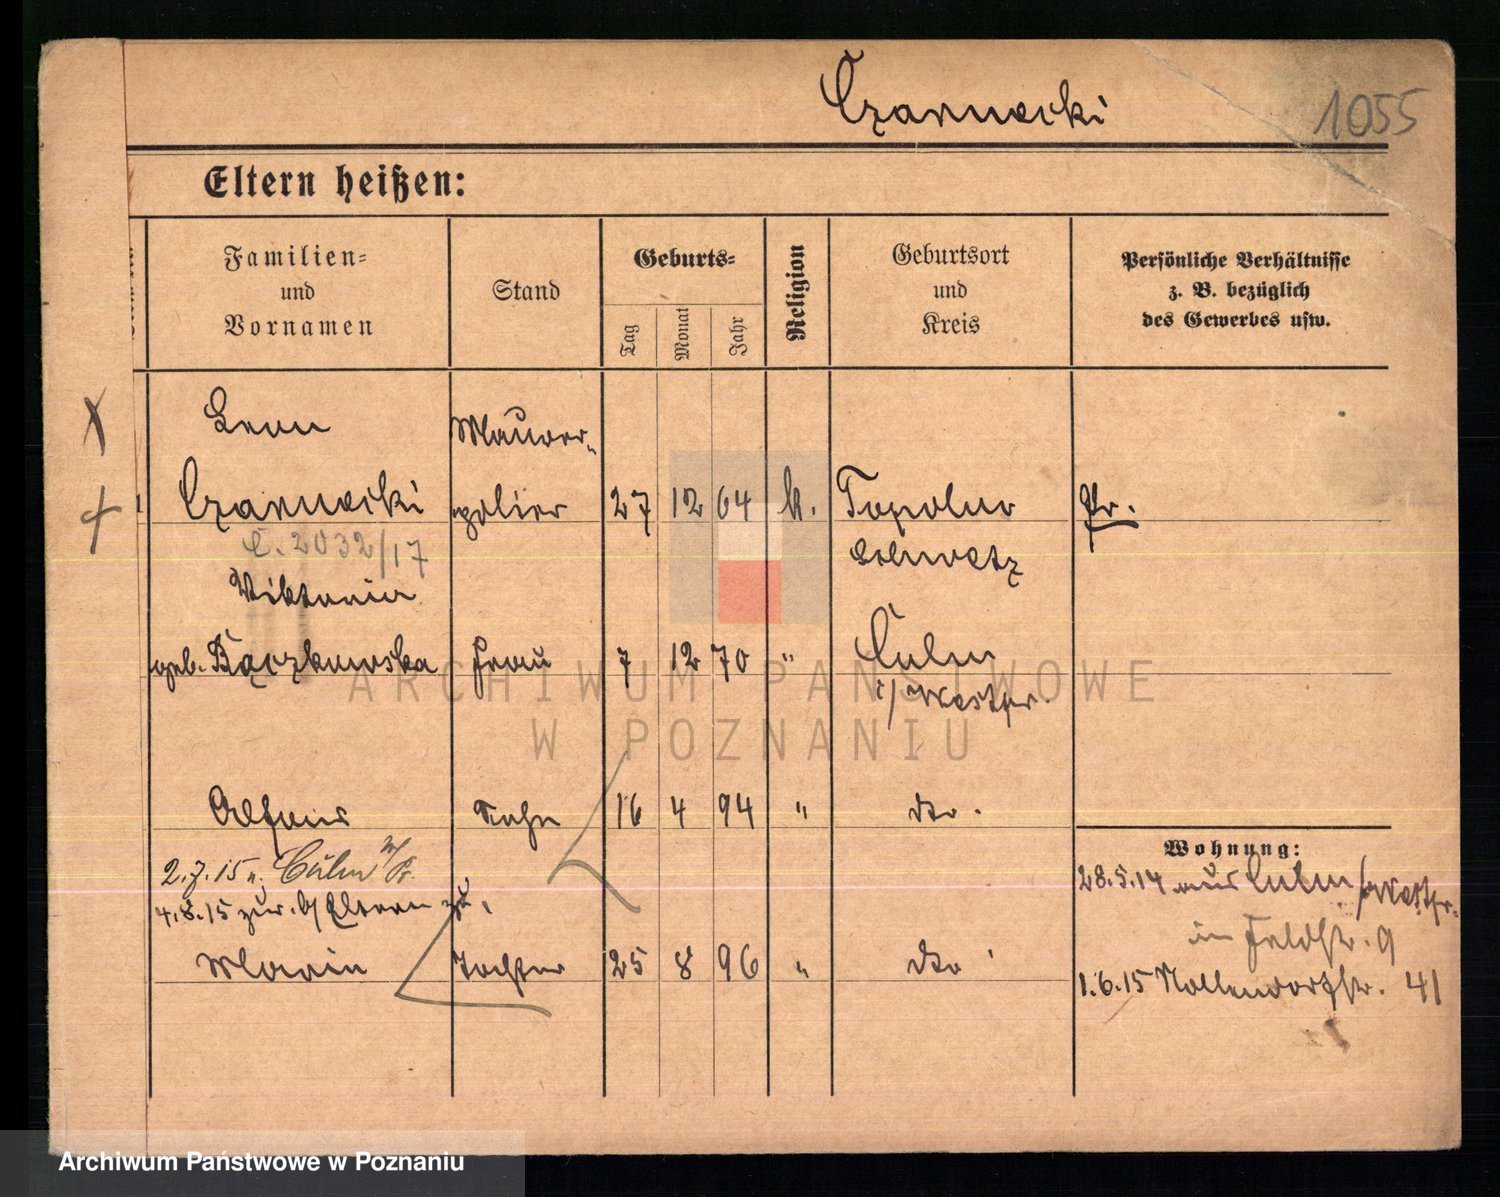 Czarnecki
1055
Eltern heißen:
Familien= und Vornamen
Stand
Geburts=
Tag
Monat
Jahr
Religion
Geburtsort und Kreis
Persönliche Verhältnisse
z. B. bezüglich
des Gewerbes usw.
Leon Maurer-
1 Czarnecki polier 27 12 64 k. Topolno Pr.
C. 2032/17 Schwetz
Viktoria
geb. Bączkowska Frau 7 12 70 " Culm
i/Westpr.
Alfons Sohn 16 4 94 " dto.
Wohnung:
2.7.15 n. Culm W/Pr.
28.5.14 aus Culm /Westpr.
4.8.15 zur. b/Eltern zu.
in Feldstr. 9
Maria Tochter 25 8 96 " dto
1.6.15 Nollendorfstr. 41
ARCHIWUM PAŃSTWOWE
W POZNANIU
Archiwum Państwowe w Poznaniu